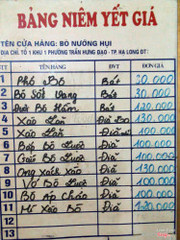 BẢNG NIÊM YẾT GIÁ
TÊN CỬA HÀNG: BÒ NƯỚNG HỤI
ĐỊA CHỈ: TỔ 1 KHU 1 PHƯỜNG TRẦN HƯNG ĐẠO - TP. HẠ LONG ĐT:
STT TÊN HÀNG ĐVT ĐƠN GIÁ
1 Phở Bò Bát 20.000
2 Bò Sốt Vang Bát 30.000
3 Đuôi Bò Hầm Bát 120.000
4 Xào Lăn Đĩa 130.000
5 Xào Đĩa 100.000
6 Bắp Bò Luộc Đĩa 100.000
7 Gầu Bò Luộc Đĩa 100.000
8 xách xào Đĩa 130.000
9 Vó Bò Luộc Đĩa 100.000
10 Bò Áp Chảo Đĩa 100.000
11 Mì Xào Bò Đĩa
12
13